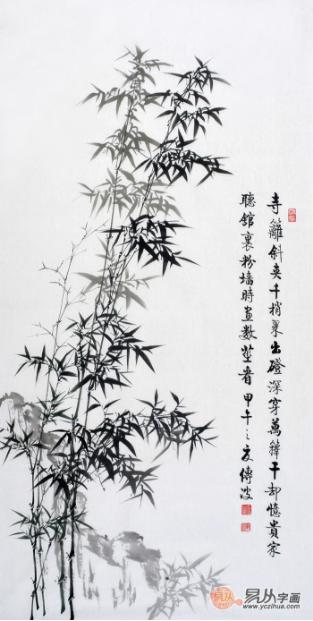 寺籬斜夾千梢翠山磴深穿萬籜干却憶貴家
聽館裏粉墻時畫數莖看甲午之夏傳波
易从字画
www.yczihua.com